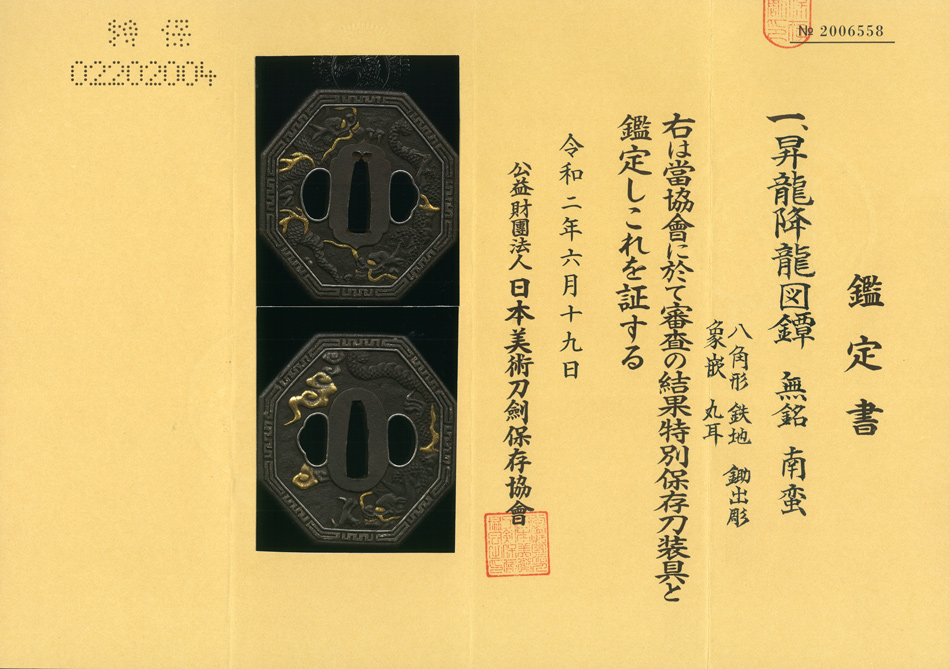 特保
02202004
№ 2006558
鑑定書
一、昇龍降龍図鐔 無銘 南蛮
八角形 鉄地 鋤出彫
象嵌 丸耳
右は當協會に於て審査の結果特別保存刀装具と
鑑定しこれを証する
令和二年六月十九日
公益財團法人 日本美術刀劍保存協會